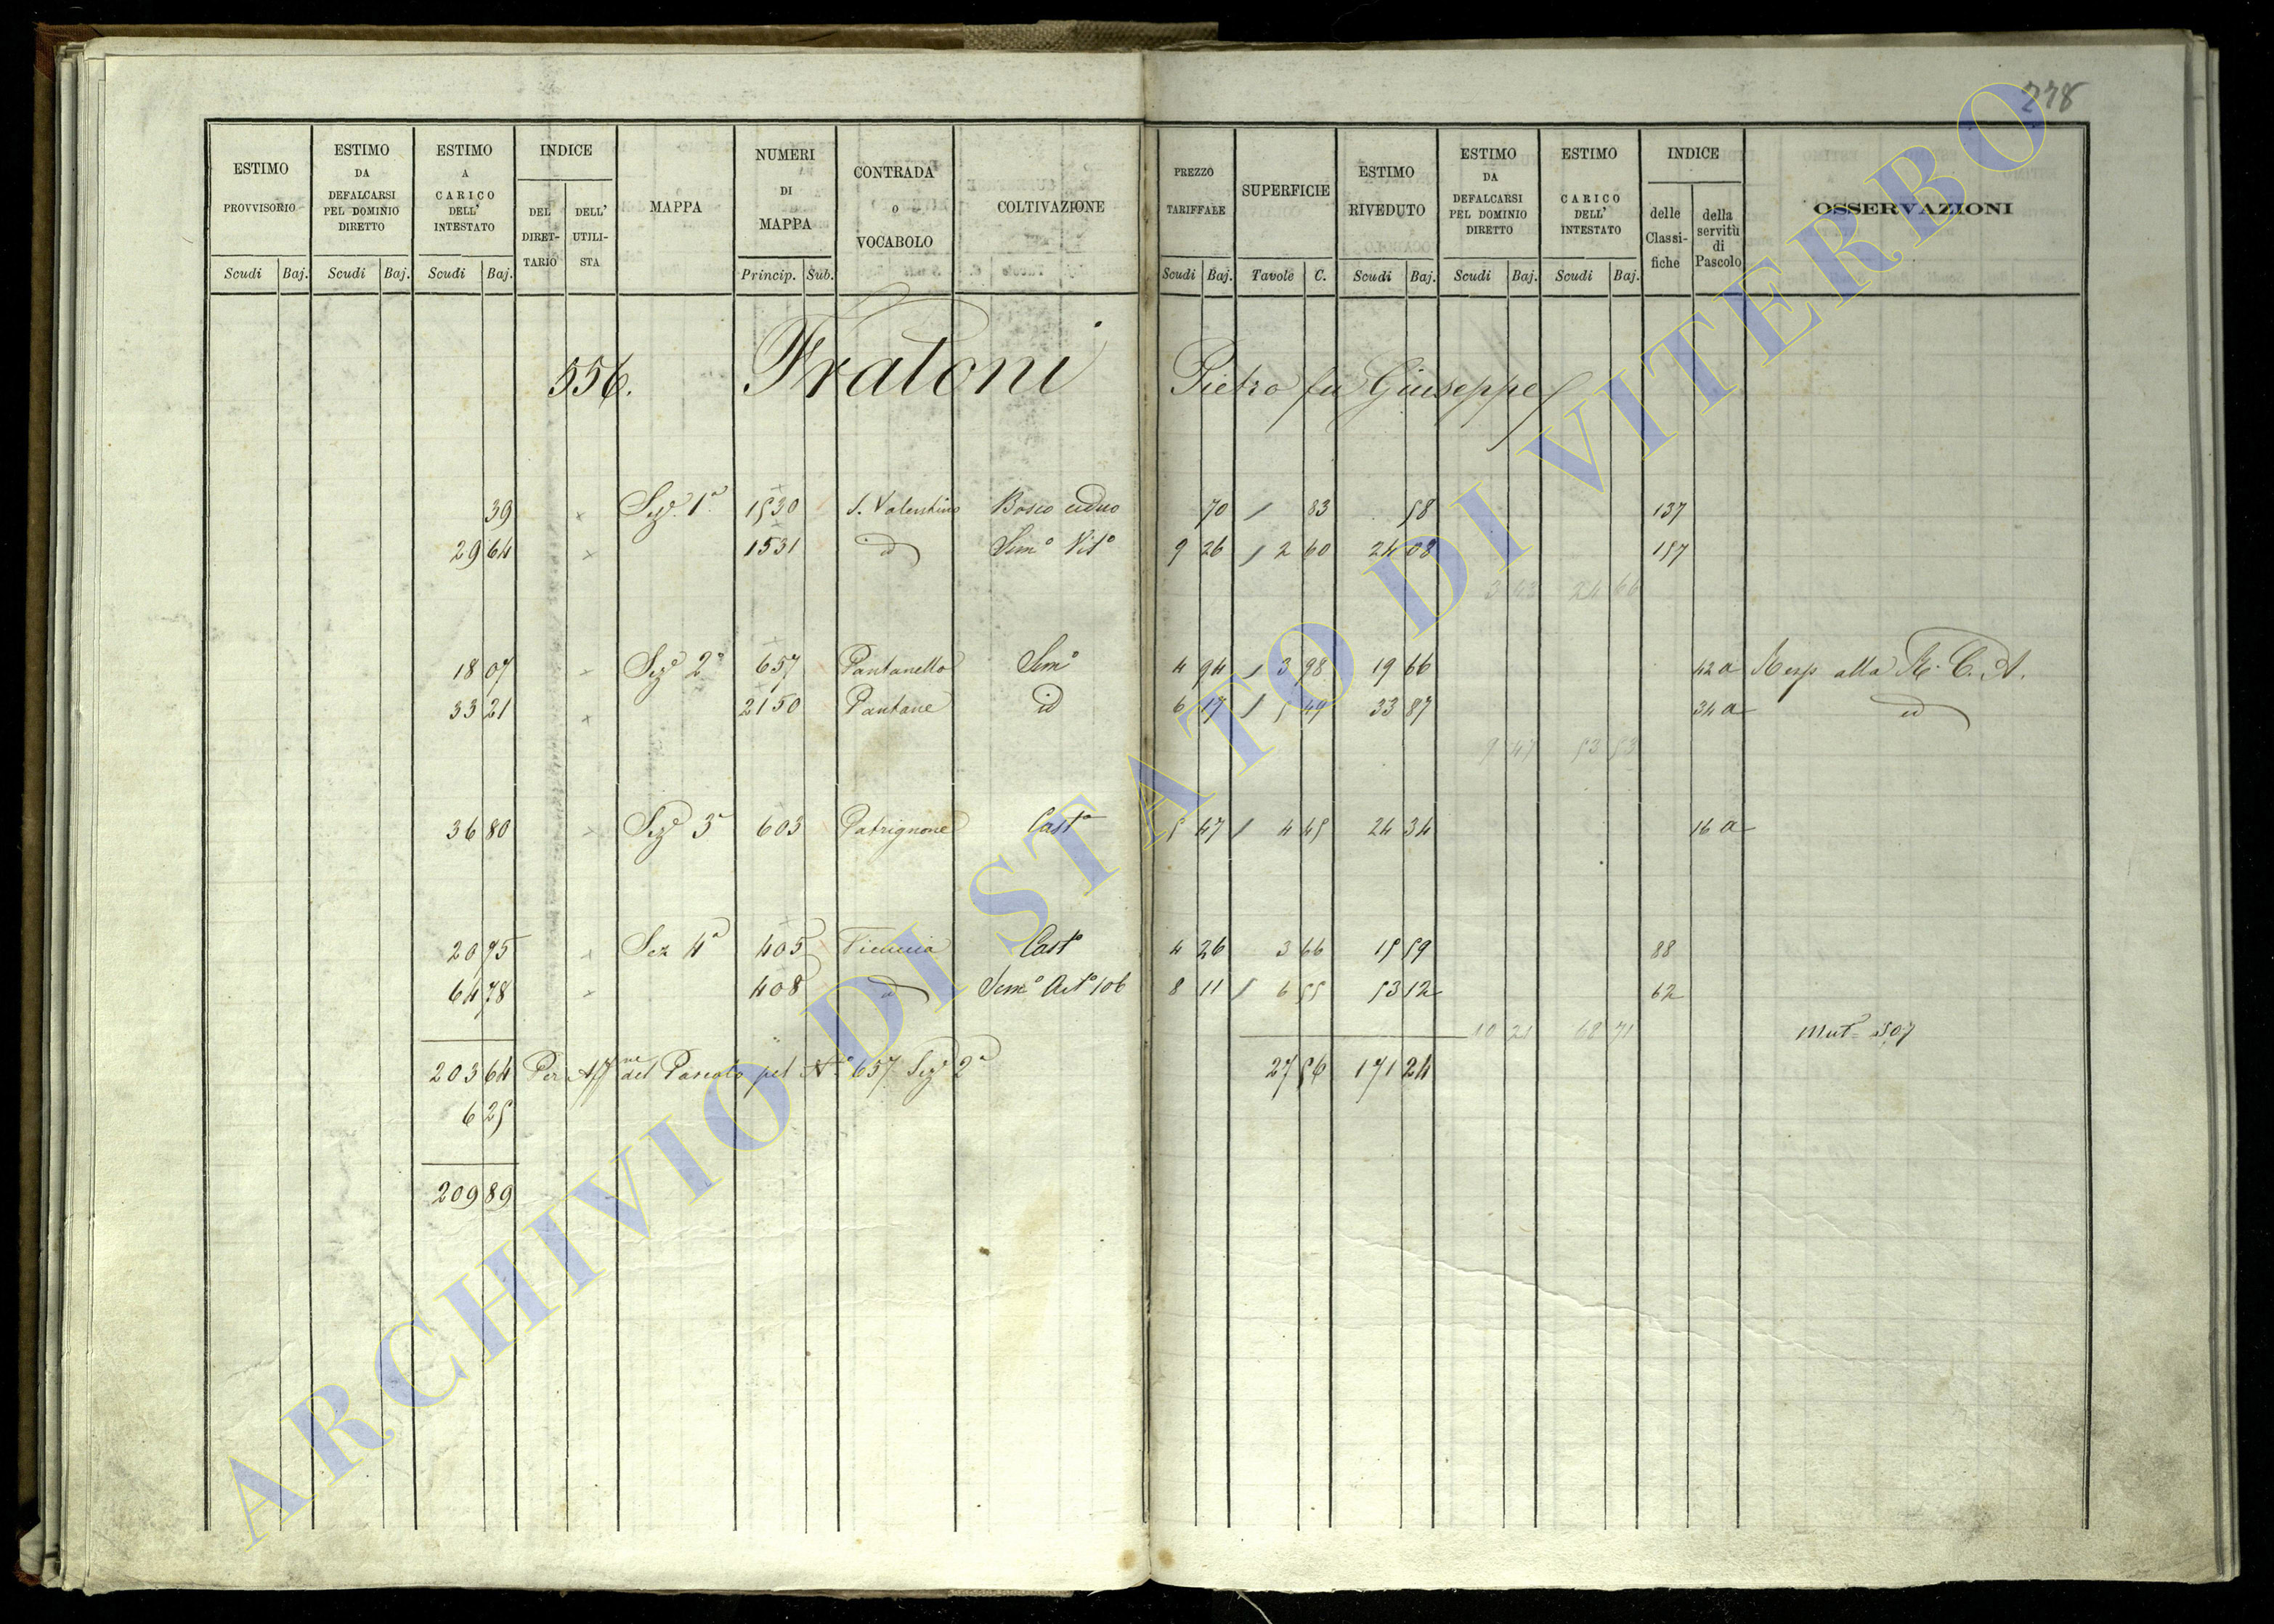 278
ESTIMO PROVVISORIO Scudi Baj. ESTIMO DA DEFALCARSI PEL DOMINIO DIRETTO Scudi Baj. ESTIMO A CARICO DELL' INTESTATO Scudi Baj. INDICE DEL DIRETTARIO DELL' UTILISTA MAPPA NUMERI DI MAPPA Princip. Sub. CONTRADA o VOCABOLO COLTIVAZIONE PREZZO TARIFFALE Scudi Baj. SUPERFICIE Tavole C. ESTIMO RIVEDUTO Scudi Baj. ESTIMO DA DEFALCARSI PEL DOMINIO DIRETTO Scudi Baj. ESTIMO CARICO DELL' INTESTATO Scudi Baj. INDICE delle Classifiche della servitù di Pascolo OSSERVAZIONI
556. Fratoni Pietro fu Giuseppe
39 Sezᵉ 1ª 1530 S. Valentino Bosco ceduo 70 / 83 58 137
29 64 1531 id Semº Vitº 9 26 / 2 60 24 08 157
3 43 24 66
18 07 Sezᵉ 2ª 657 Pantanello Semº 4 94 / 3 98 19 66 42 a Resp alla R. C. A.
33 21 2150 Pantane id 6 17 / 5 49 33 87 34 a id
9 47 53 53
36 80 Sezᵉ 3ª 603 Patrignone Castº 5 47 / 4 45 24 34 16 a
20 75 Sez 4ª 405 Castº 4 26 3 66 15 59 88
64 78 408 id Semº Artº 106 8 11 / 6 55 53 12 62
10 21 68 71 Mut= 507
203 64 Per Affⁿᵉ del Pascolo pel Nº 657 Sezᵉ 2ª 27 56 171 24
6 25
209 89
ARCHIVIO DI STATO DI VITERBO